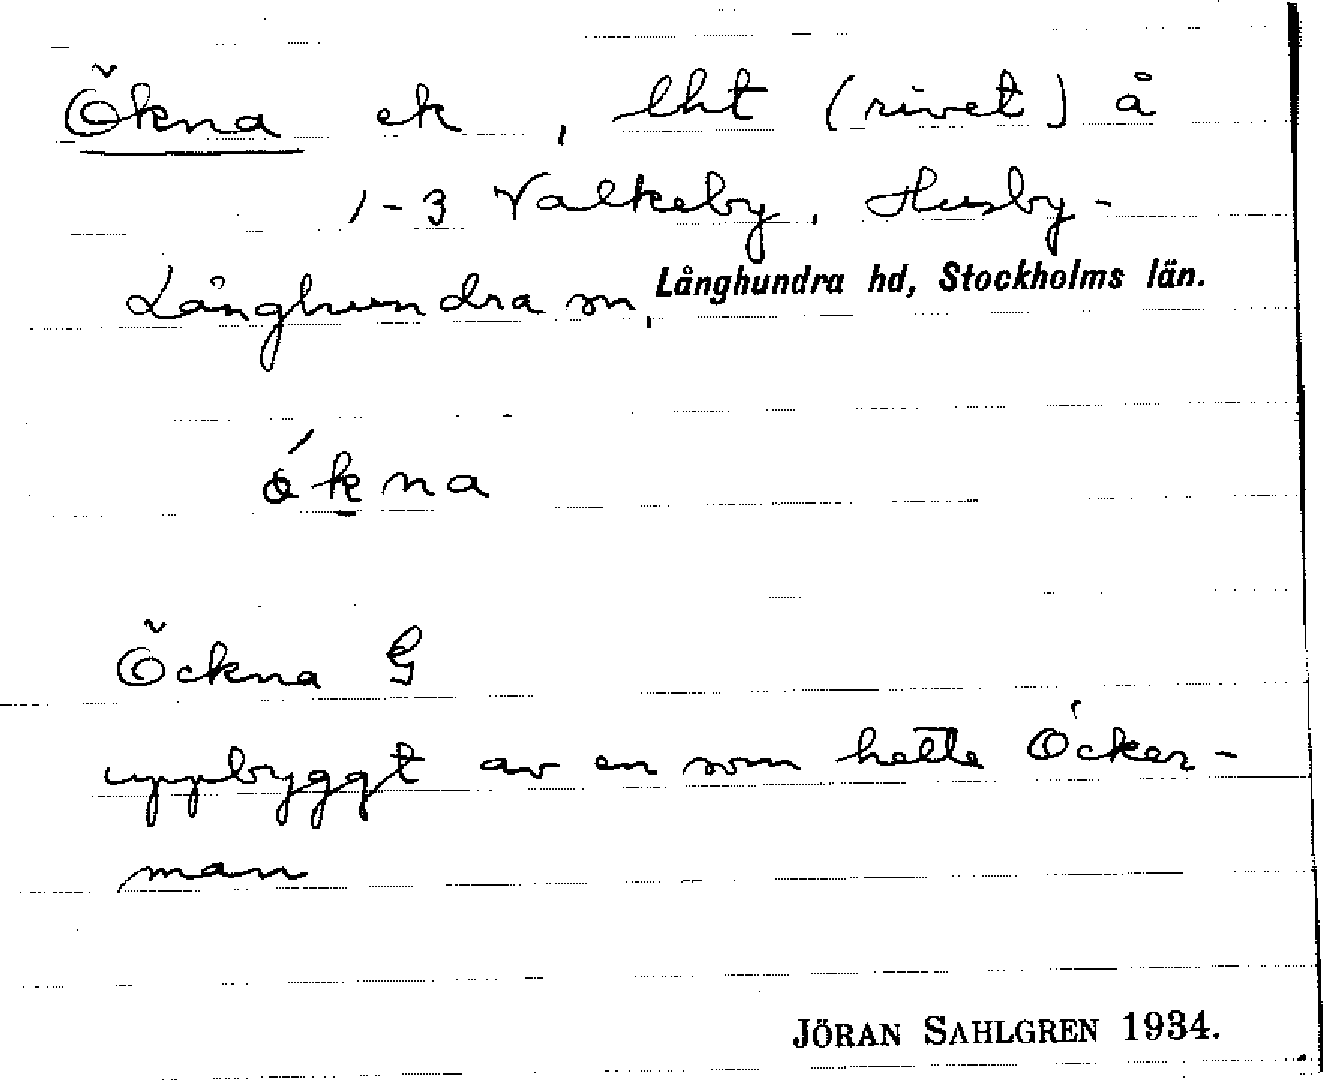 Ökna ek, lht (rivet) å
1-3 Valkeby, Husby-
Långhundra sn, Långhundra hd, Stockholms län.
ó̀kna
Öckna G
uppbyggt av en som hette Öcker-
man
JÖRAN SAHLGREN 1934.